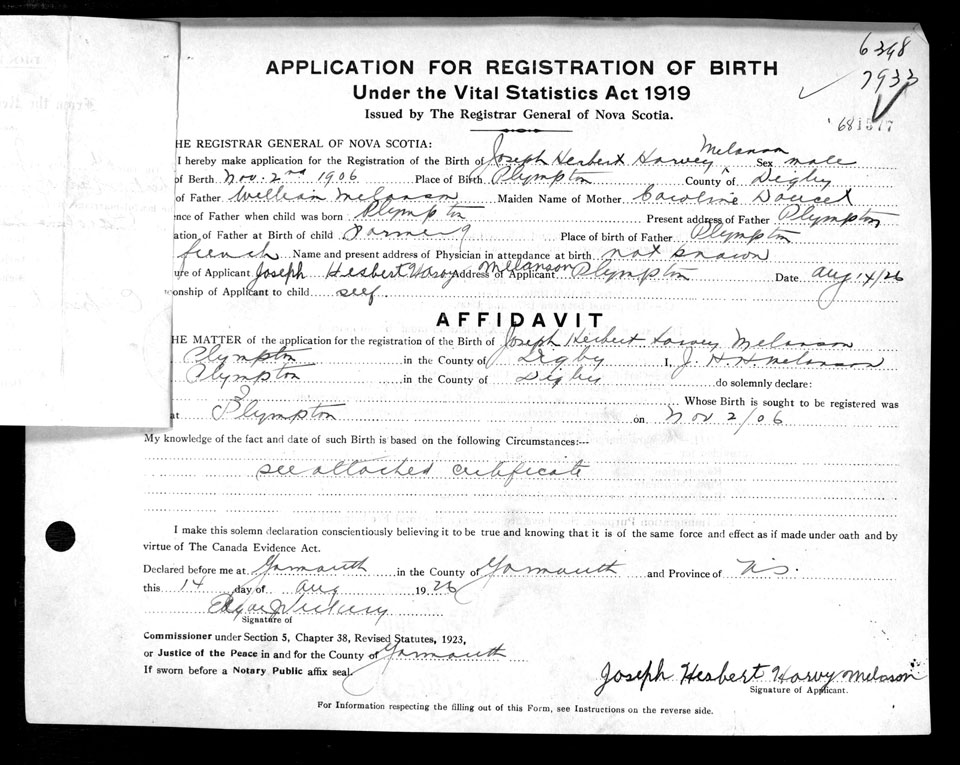 6398
7933
681577
APPLICATION FOR REGISTRATION OF BIRTH
Under the Vital Statistics Act 1919
Issued by The Registrar General of Nova Scotia.
HE REGISTRAR GENERAL OF NOVA SCOTIA:
I hereby make application for the Registration of the Birth of Joseph Herbert Harvey Melanson Sex male
of Birth Nov. 2nd 1906 Place of Birth Plympton County of Digby
of Father William Melanson Maiden Name of Mother Caroline Doucet
ence of Father when child was born Plympton Present address of Father Plympton
ation of Father at Birth of child Farming Place of birth of Father Plympton
french Name and present address of Physician in attendance at birth not known
ure of Applicant Joseph Herbert Harvy Melanson Address of Applicant Plympton Date Aug 14/26
onship of Applicant to child self.
AFFIDAVIT
HE MATTER of the application for the registration of the Birth of Joseph Herbert Harvey Melanson
Plympton in the County of Digby I, J. H. H. Melanson
Plympton in the County of Digby do solemnly declare:
Whose Birth is sought to be registered was
at Plympton on Nov 2/06
My knowledge of the fact and date of such Birth is based on the following Circumstances:--
see attached certificate
I make this solemn declaration conscientiously believing it to be true and knowing that it is of the same force and effect as if made under oath and by
virtue of The Canada Evidence Act.
Declared before me at Yarmouth in the County of Yarmouth and Province of N.S.
this 14 day of Aug 1926
Signature of
Commissioner under Section 5, Chapter 38, Revised Statutes, 1923,
or Justice of the Peace in and for the County of Yarmouth
If sworn before a Notary Public affix seal.
Joseph Herbert Harvy Melanson
Signature of Applicant.
For Information respecting the filling out of this Form, see Instructions on the reverse side.